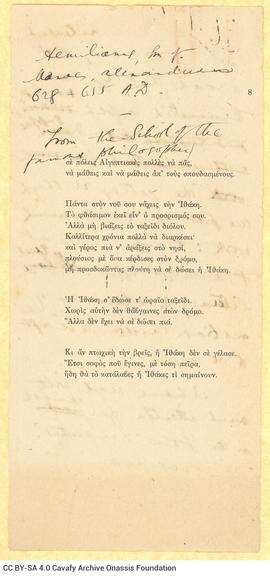 Aemilianus, son of
Monaes, Alexandrian
628 655 A.D.
8
From the School of the
famous philosopher
σὲ πόλεις Αἰγυπτιακὲς πολλὲς νὰ πᾷς,
νὰ μάθεις καὶ νὰ μάθεις ἀπ' τοὺς σπουδασμένους.
Πάντα στὸν νοῦ σου νἄχεις τὴν Ἰθάκη.
Τὸ φθάσιμον ἐκεῖ εἶν' ὁ προορισμός σου.
Ἀλλὰ μὴ βιάζεις τὸ ταξεῖδι διόλου.
Καλλίτερα χρόνια πολλὰ νὰ διαρκέσει·
καὶ γέρος πιὰ ν' ἀράξεις στὸ νησί,
πλούσιος μὲ ὅσα κέρδισες στὸν δρόμο,
μὴ προσδοκῶντας πλούτη νὰ σὲ δώσει ἡ Ἰθάκη.
Ἡ Ἰθάκη σ' ἔδωσε τ' ὡραῖο ταξεῖδι.
Χωρὶς αὐτὴν δὲν θἄβγαινες στὸν δρόμο.
Ἄλλα δὲν ἔχει νὰ σὲ δώσει πιά.
Κι ἂν πτωχικὴ τὴν βρεῖς, ἡ Ἰθάκη δὲν σὲ γέλασε.
Ἔτσι σοφὸς ποῦ ἔγινες, μὲ τόση πεῖρα,
ἤδη θὰ τὸ κατάλαβες ᾑ Ἰθάκες τί σημαίνουν.
CC BY-SA 4.0 Cavafy Archive Onassis Foundation